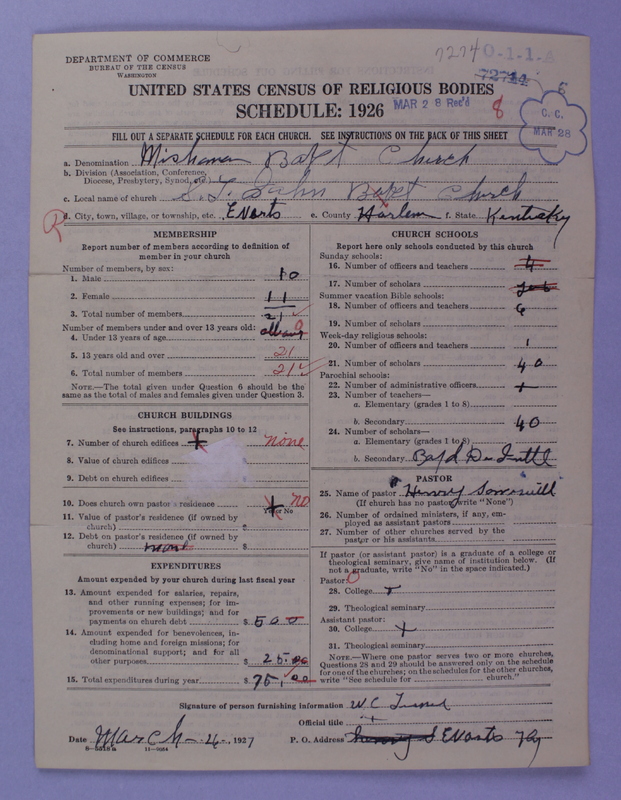 7274 0-1-1-A
72744
DEPARTMENT OF COMMERCE
BUREAU OF THE CENSUS
WASHINGTON
UNITED STATES CENSUS OF RELIGIOUS BODIES
SCHEDULE: 1926
MAR 28 Rec'd
8
C. C.
MAR 28
FILL OUT A SEPARATE SCHEDULE FOR EACH CHURCH. SEE INSTRUCTIONS ON THE BACK OF THIS SHEET
a. Denomination Mishanan Bapt Church
b. Division (Association, Conference,
Diocese, Presbytery, Synod, etc.)
c. Local name of church Bapt Church
d. City, town, village, or township, etc. Evarts e. County Harlem f. State Kentucky
MEMBERSHIP
Report number of members according to definition of
member in your church
Number of members, by sex:
1. Male 10
2. Female 11
3. Total number of members 21
Number of members under and over 13 years old:
4. Under 13 years of age 0
5. 13 years old and over 21
6. Total number of members 21
NOTE.—The total given under Question 6 should be the
same as the total of males and females given under Question 3.
CHURCH BUILDINGS
See instructions, paragraphs 10 to 12
7. Number of church edifices none
8. Value of church edifices
9. Debt on church edifices
10. Does church own pastor's residence no
Yes or No
11. Value of pastor's residence (if owned by
church) $
12. Debt on pastor's residence (if owned by
church) $
EXPENDITURES
Amount expended by your church during last fiscal year
13. Amount expended for salaries, repairs,
and other running expenses; for im-
provements or new buildings; and for
payments on church debt $ 500
14. Amount expended for benevolences, in-
cluding home and foreign missions; for
denominational support; and for all
other purposes $ 25.00
15. Total expenditures during year $ 75.00
CHURCH SCHOOLS
Report here only schools conducted by this church
Sunday schools:
16. Number of officers and teachers 4
17. Number of scholars
Summer vacation Bible schools:
18. Number of officers and teachers 6
19. Number of scholars
Week-day religious schools:
20. Number of officers and teachers 1
21. Number of scholars 40
Parochial schools:
22. Number of administrative officers
23. Number of teachers—
a. Elementary (grades 1 to 8)
b. Secondary 40
24. Number of scholars—
a. Elementary (grades 1 to 8)
b. Secondary
PASTOR
25. Name of pastor Henry
(If church has no pastor, write "None")
26. Number of ordained ministers, if any, em-
ployed as assistant pastors
27. Number of other churches served by the
pastor or his assistants
If pastor (or assistant pastor) is a graduate of a college or
theological seminary, give name of institution below. (If
not a graduate, write "No" in the space indicated.)
Pastor: 0
28. College
29. Theological seminary
Assistant pastor:
30. College
31. Theological seminary
NOTE.—Where one pastor serves two or more churches,
Questions 28 and 29 should be answered only on the schedule
for one of the churches; on the schedules for the other churches,
write "See schedule for ______ church."
Signature of person furnishing information W C
Official title
Date March 26, 1927 P. O. Address Evarts Ky
8-5518a 11-9084